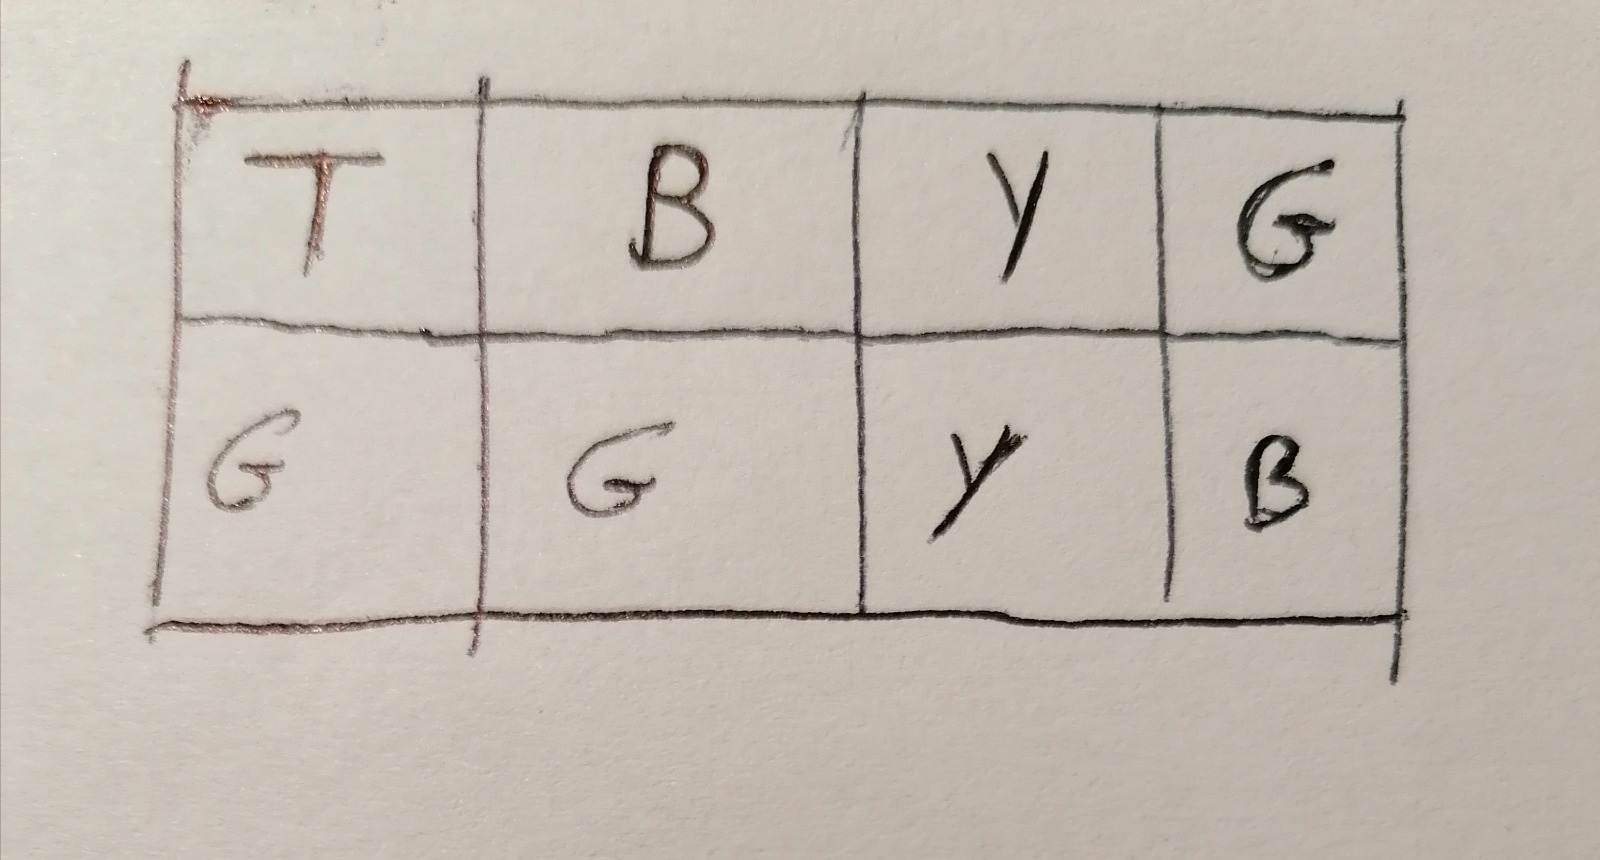 T B Y G
G G Y B